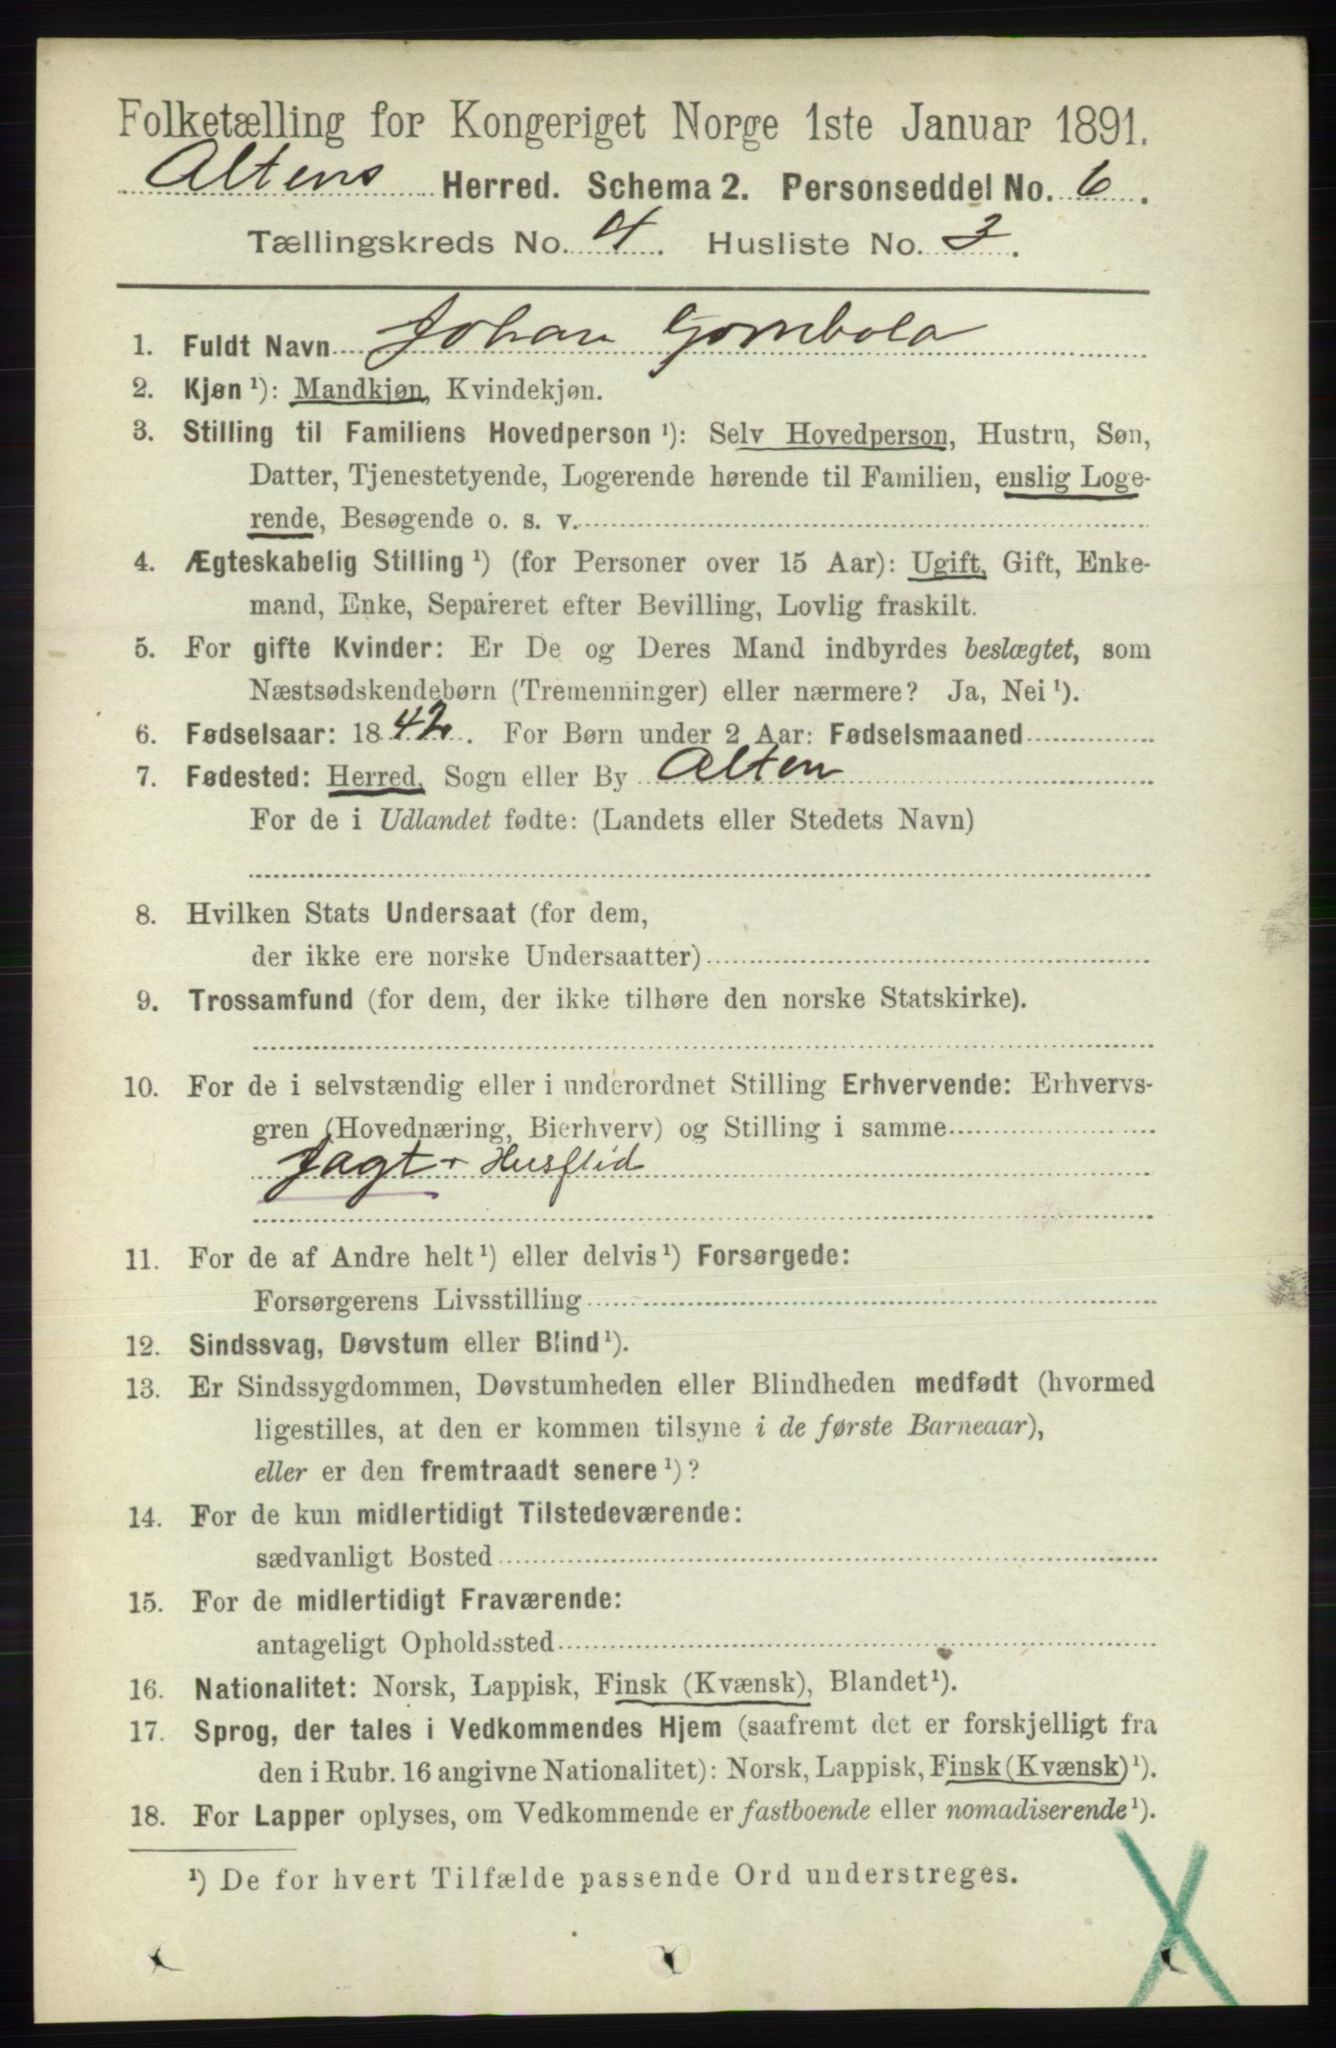 Folketælling for Kongeriget Norge 1ste Januar 1891.
Altens Herred. Schema 2. Personseddel No. 6.
Tællingskreds No. 4. Husliste No. 3.
1. Fuldt Navn Johan Gombola
2. Kjøn ¹): Mandkjøn, Kvindekjøn.
3. Stilling til Familiens Hovedperson ¹): Selv Hovedperson, Hustru, Søn,
Datter, Tjenestetyende, Logerende hørende til Familien, enslig Loge-
rende, Besøgende o. s. v.
4. Ægteskabelig Stilling ¹) (for Personer over 15 Aar): Ugift, Gift, Enke-
mand, Enke, Separeret efter Bevilling, Lovlig fraskilt.
5. For gifte Kvinder: Er De og Deres Mand indbyrdes beslægtet, som
Næstsødskendebørn (Tremenninger) eller nærmere? Ja, Nei ¹).
6. Fødselsaar: 1842. For Børn under 2 Aar: Fødselsmaaned
7. Fødested: Herred, Sogn eller By Alten
For de i Udlandet fødte: (Landets eller Stedets Navn)
8. Hvilken Stats Undersaat (for dem,
der ikke ere norske Undersaatter)
9. Trossamfund (for dem, der ikke tilhøre den norske Statskirke).
10. For de i selvstændig eller i underordnet Stilling Erhvervende: Erhvervs-
gren (Hovednæring, Bierhverv) og Stilling i samme
Jagt + Husflid
11. For de af Andre helt ¹) eller delvis ¹) Forsørgede:
Forsørgerens Livsstilling
12. Sindssvag, Døvstum eller Blind ¹).
13. Er Sindssygdommen, Døvstumheden eller Blindheden medfødt (hvormed
ligestilles, at den er kommen tilsyne i de første Barneaar),
eller er den fremtraadt senere ¹)?
14. For de kun midlertidigt Tilstedeværende:
sædvanligt Bosted
15. For de midlertidigt Fraværende:
antageligt Opholdssted
16. Nationalitet: Norsk, Lappisk, Finsk (Kvænsk), Blandet ¹).
17. Sprog, der tales i Vedkommendes Hjem (saafremt det er forskjelligt fra
den i Rubr. 16 angivne Nationalitet): Norsk, Lappisk, Finsk (Kvænsk) ¹).
18. For Lapper oplyses, om Vedkommende er fastboende eller nomadiserende ¹).
¹) De for hvert Tilfælde passende Ord understreges.